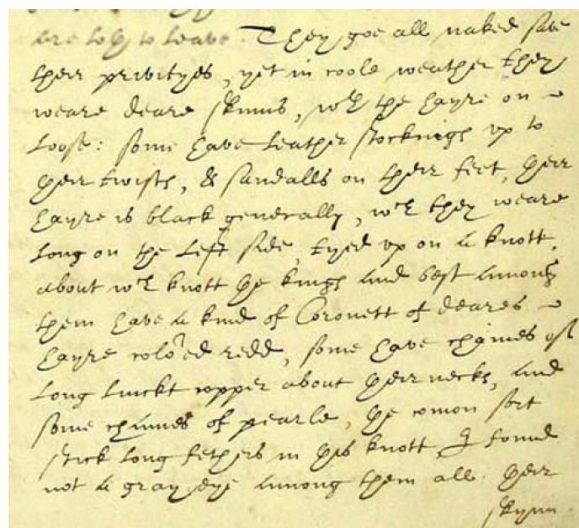 are loth to leave. They goe all naked save
their privityes, yet in coole weather they
weare deare skinns, wth the hayre on
loose: some have leather stockings vp to
their twists, & sandalls on their feet, their
hayre is black generally, wch they weare
long on the left side, tyed vp on a knott,
about wch knott the kings and best among
them have a kind of Coronett of deares
hayre colored redd, some have chaines of
long linckt copper about their necks, and
some chaines of pearle, the comon sort
stick long fethers in this knott, I found
not a gray eye among them all. their
skynn